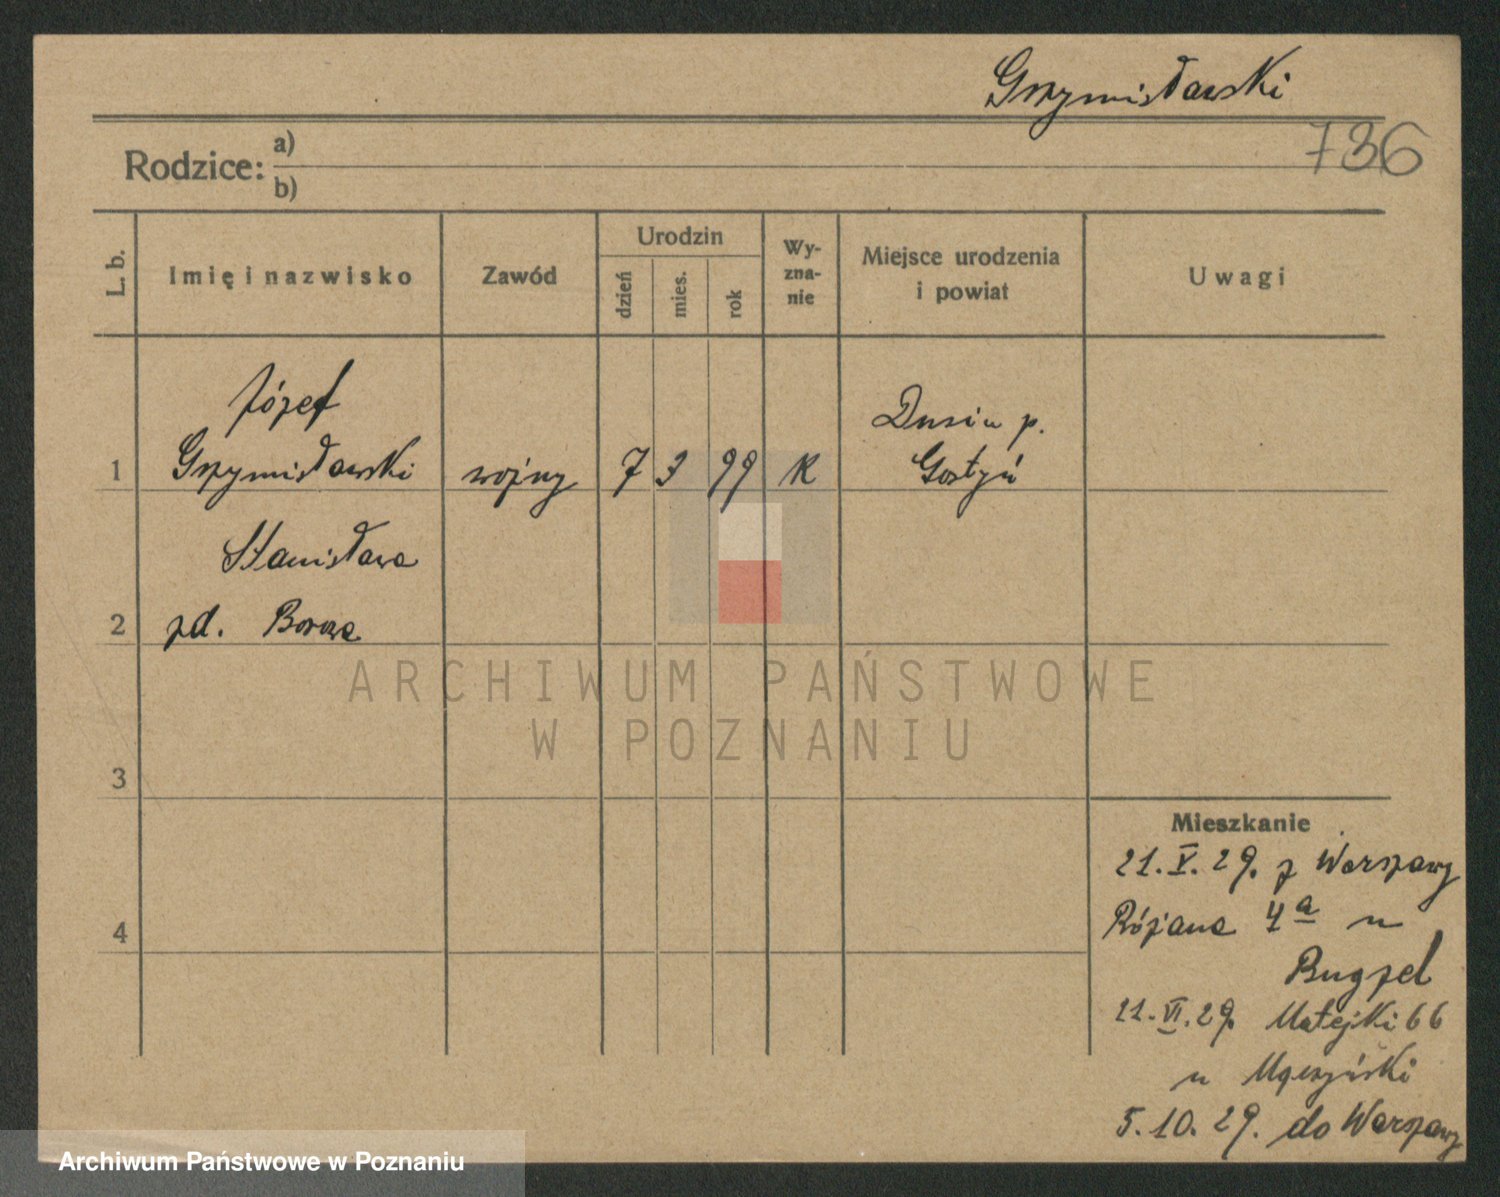 Grzymisławski
736
Rodzice: a)
b)
L. b.
Imię i nazwisko
Zawód
Urodzin
dzień
mies.
rok
Wy-
zna-
nie
Miejsce urodzenia
i powiat
Uwagi
Józef
Dusin p.
1 Grzymisławski woźny 7 3 99 K Gostyń
Stanisława
2 zd.
3
4
ARCHIWUM PAŃSTWOWE
W POZNANIU
Mieszkanie
21.V.29. z Warszawy
Różana 4a u
Bugzel
21.VI.29. Matejki 66
u
5.10.29. do Warszawy
Archiwum Państwowe w Poznaniu